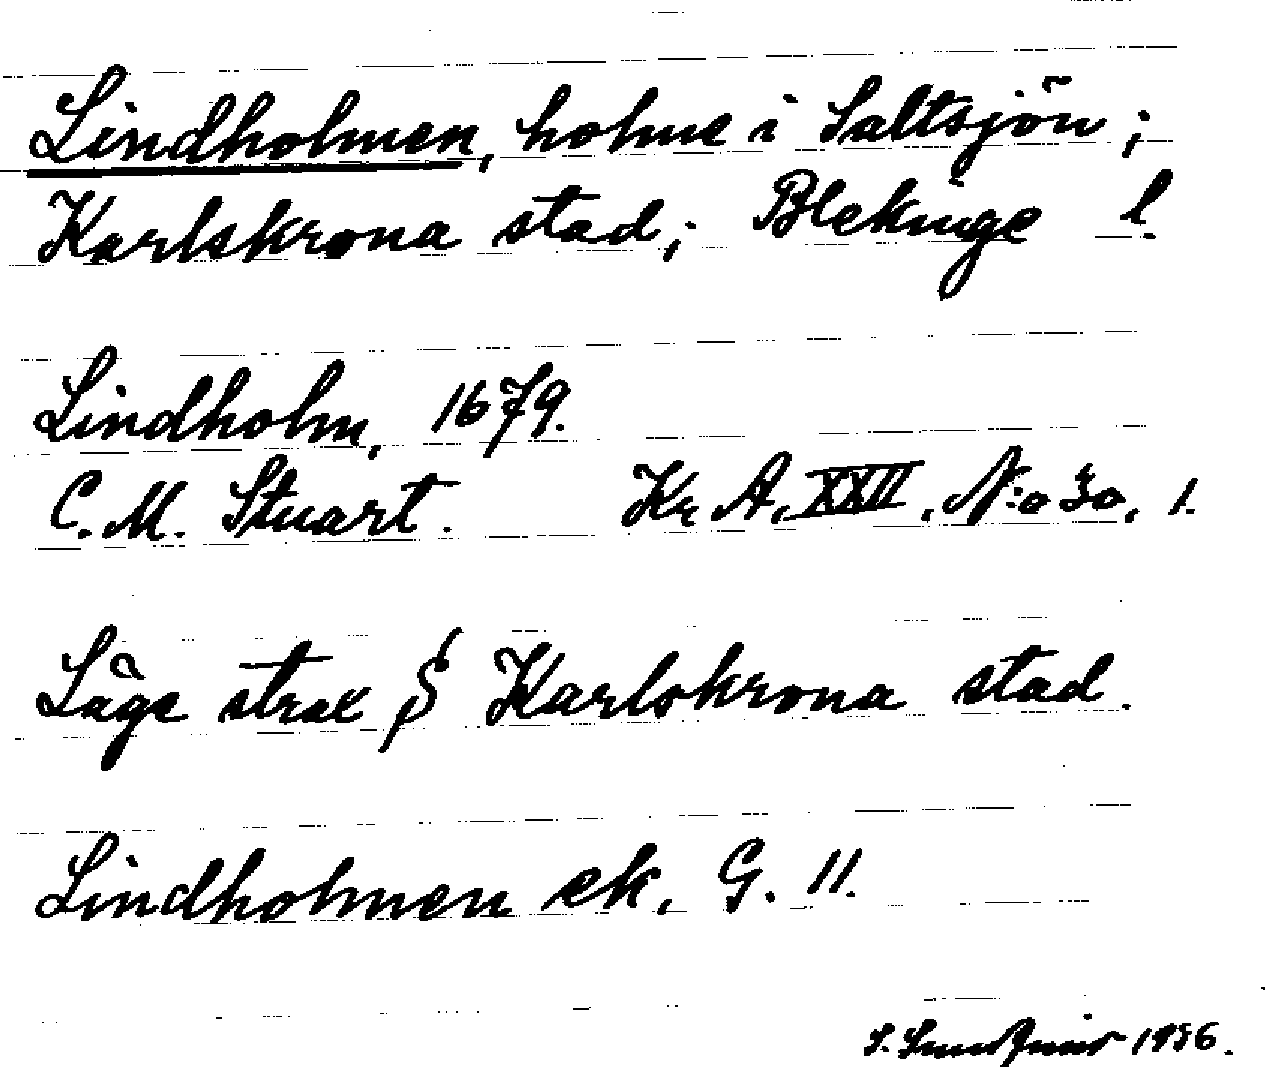 Lindholmen, holme i Saltsjön;
Karlskrona stad; Blekinge l.
Lindholm, 1679.
C. M. Stuart. Kr A, XXII, N:o 30, 1.
Läge strax S Karlskrona stad.
Lindholmen ek, G. 11.
S. 1936.